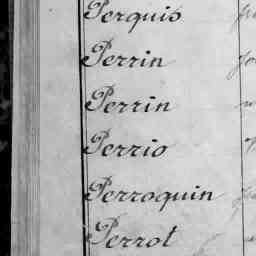 Perquis
Perrin
Perrin
Perrio
Perroquin
Perrot